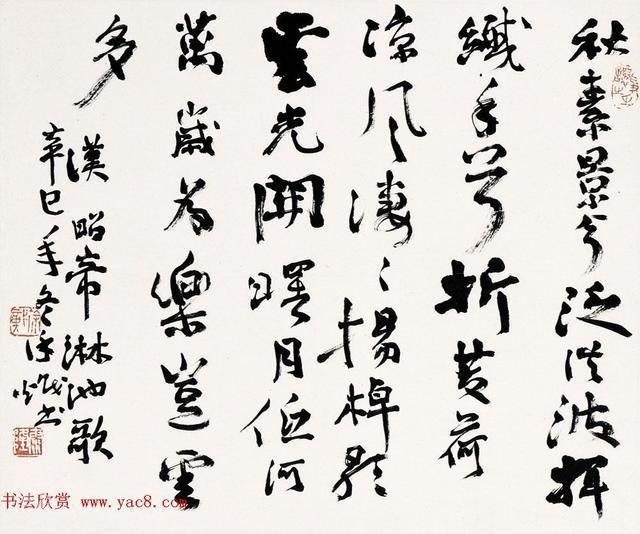 秋素景兮泛洪波揮
纖手兮折芰荷
凉風凄〻揚棹歌
雲光開曙月低河
萬歲为樂豈雲
多
漢昭帝淋池歌
辛巳年冬書
书法欣赏 www.yac8.com